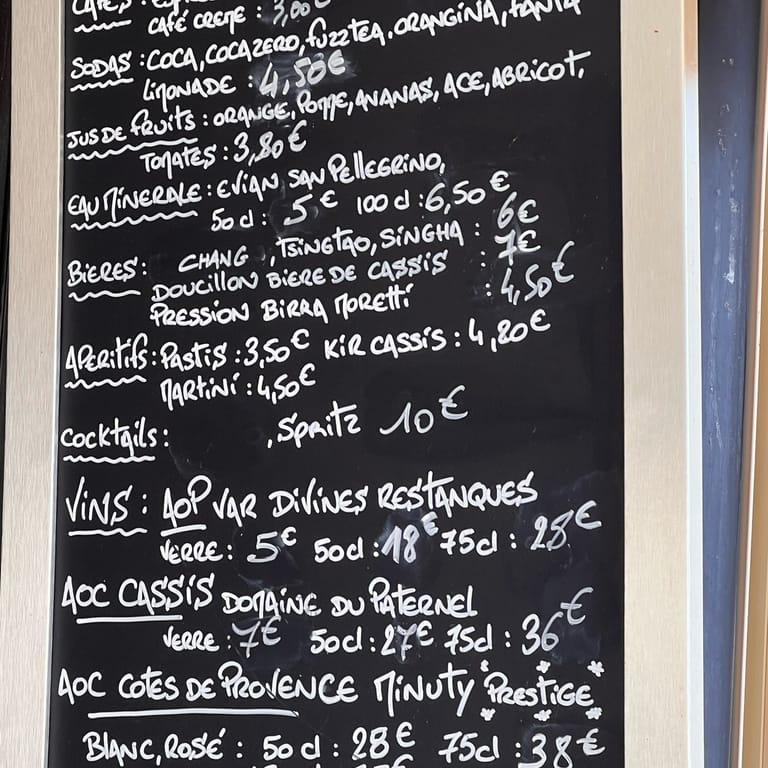 CAFÉ CREME : 3,00€
SODAS : COCA, COCA ZERO, FUZZTEA, ORANGINA, FANTA
LIMONADE : 4,50€
JUS DE FRUITS : ORANGE, POMME, ANANAS, ACE, ABRICOT,
TOMATES : 3,80€
EAU MINERALE : EVIAN, SAN PELLEGRINO,
50 cl : 5€ 100 cl : 6,50€
BIERES : CHANG , TSINGTAO, SINGHA : 6€
DOUCILLON BIERE DE CASSIS : 7€
PRESSION BIRRA MORETTI : 4,50€
APERITIFS : PASTIS : 3,50€ KIR CASSIS : 4,80€
MARTINI : 4,50€
COCKTAILS : , SPRITZ 10€
VINS : AOP VAR DIVINES RESTANQUES
VERRE : 5€ 50cl : 18€ 75cl : 28€
AOC CASSIS DOMAINE DU PATERNEL
VERRE : 7€ 50cl : 27€ 75cl : 36€
AOC COTES DE PROVENCE MINUTY *PRESTIGE*
BLANC, ROSÉ : 50 cl : 28€ 75cl : 38€